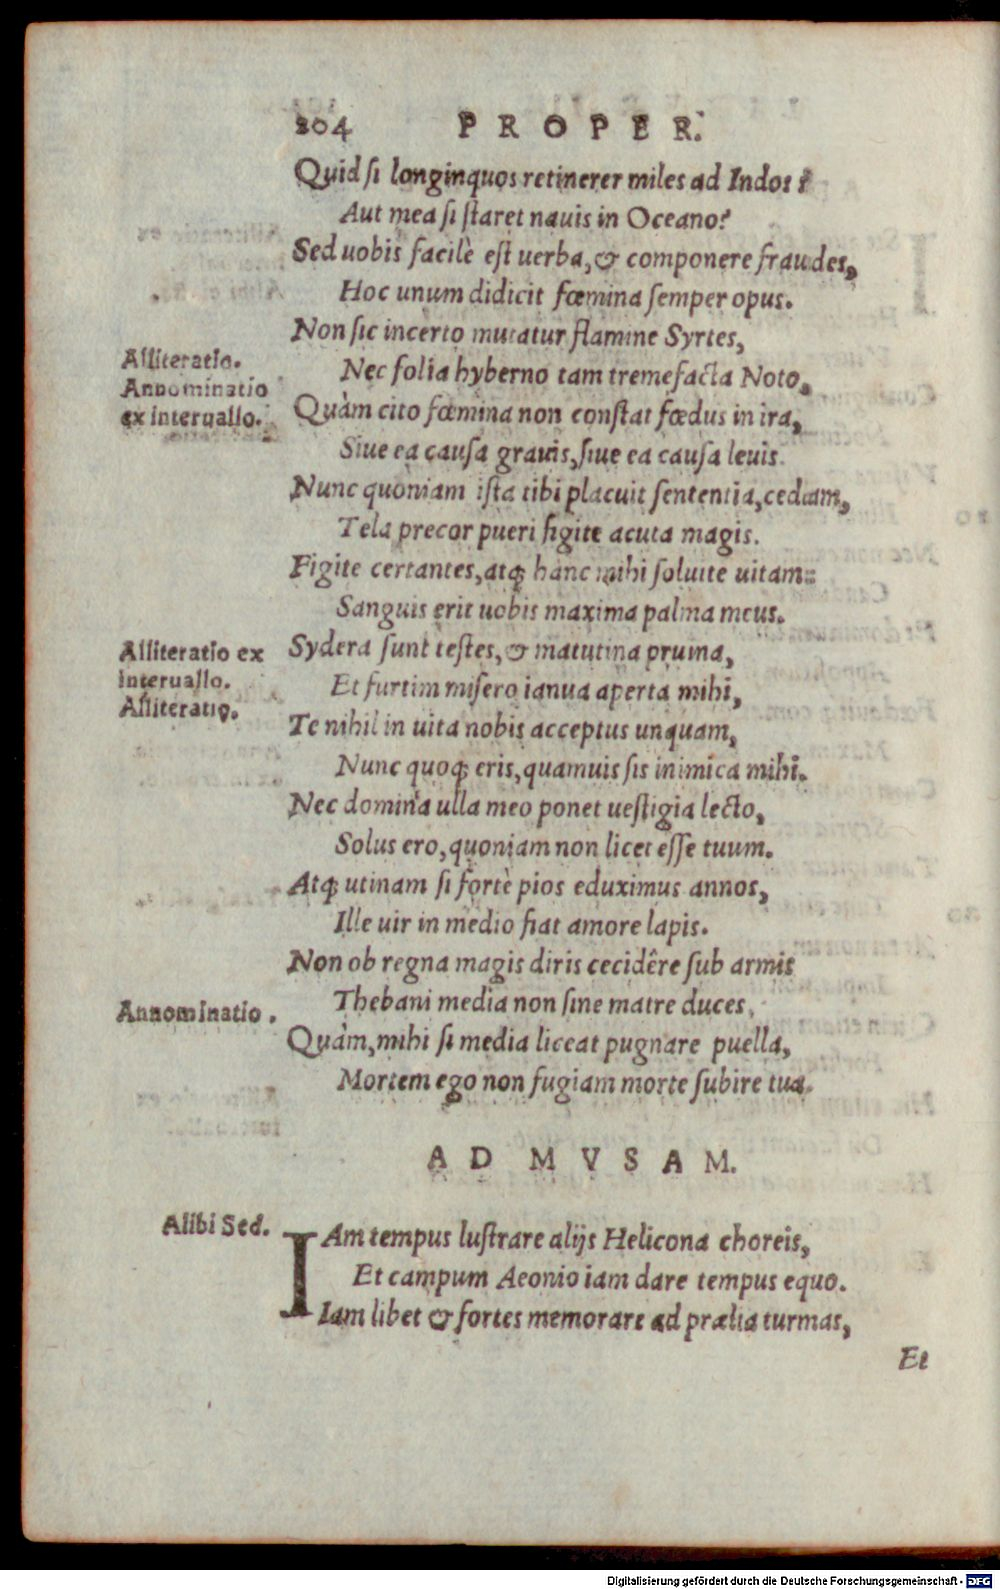 204 PROPER.
Quid si longinquos retinerer miles ad Indos?
Aut mea si staret nauis in Oceano?
Sed uobis facilè est uerba, & componere fraudes,
Hoc unum didicit fœmina semper opus.
Non sic incerto mutatur flamine Syrtes,
Alliteratio.
Nec folia hyberno tam tremefacta Noto,
Annominatio
ex interuallo.
Quàm cito fœmina non constat fœdus in ira,
Siue ea causa grauis, siue ea causa leuis.
Nunc quoniam ista tibi placuit sententia, cedam,
Tela precor pueri figite acuta magis.
Figite certantes, atq; hanc mihi soluite uitam:
Sanguis erit uobis maxima palma meus.
Alliteratio ex
interuallo.
Sydera sunt testes, & matutina pruina,
Et furtim misero ianua aperta mihi,
Alliteratio.
Te nihil in uita nobis acceptus unquam,
Nunc quoq; eris, quamuis sis inimica mihi.
Nec domina ulla meo ponet uestigia lecto,
Solus ero, quoniam non licet esse tuum.
Atq; utinam si fortè pios eduximus annos,
Ille uir in medio fiat amore lapis.
Non ob regna magis diris cecidêre sub armis
Thebani media non sine matre duces,
Annominatio.
Quàm, mihi si media liceat pugnare puella,
Mortem ego non fugiam morte subire tua.
AD MVSAM.
Alibi Sed.
IAm tempus lustrare alijs Helicona choreis,
Et campum Aeonio iam dare tempus equo.
Iam libet & fortes memorare ad prælia turmas,
Et
Digitalisierung gefördert durch die Deutsche Forschungsgemeinschaft - DFG